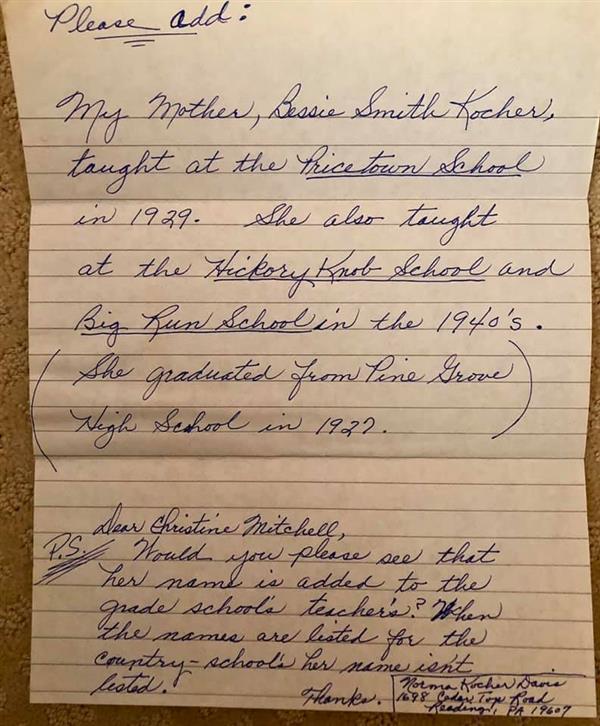 Please add:
My Mother, Bessie Smith Kocher,
taught at the Pricetown School
in 1929. She also taught
at the Hickory Knob School and
Big Run School in the 1940's.
(She graduated from Pine Grove
High School in 1927.)
Dear Christine Mitchell,
P.S. Would you please see that
her name is added to the
grade school's teacher's? When
the names are listed for the
country-school's her name isn't
listed.
Thanks.
Norma Kocher Davis
1698 Cedar Top Road
Reading, PA 19607